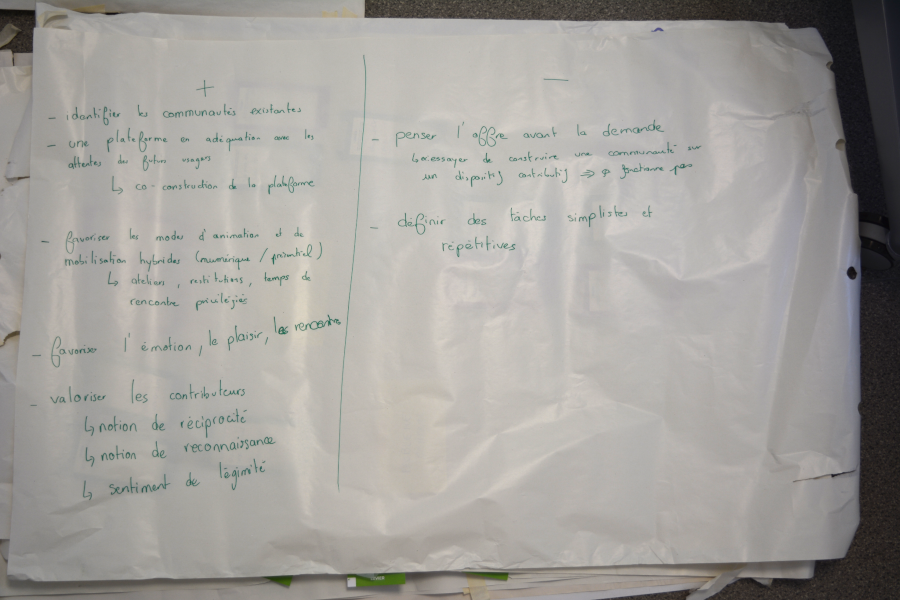 +
- identifier les communautés existantes
- une plateforme en adéquation avec les
attentes des futurs usagers
↳ co-construction de la plateforme
- favoriser les modes d'animation et de
mobilisation hybrides (numérique / présentiel)
↳ ateliers, restitutions, temps de
rencontre privilégiés
- favoriser l'émotion, le plaisir, les rencontres
- valoriser les contributeurs
↳ notion de réciprocité
↳ notion de reconnaissance
↳ sentiment de légimité
—
- penser l'offre avant la demande
↳ essayer de construire une communauté sur
un dispositif contributif ⇒ fonctionne pas
- définir des tâches simplistes et
répétitives